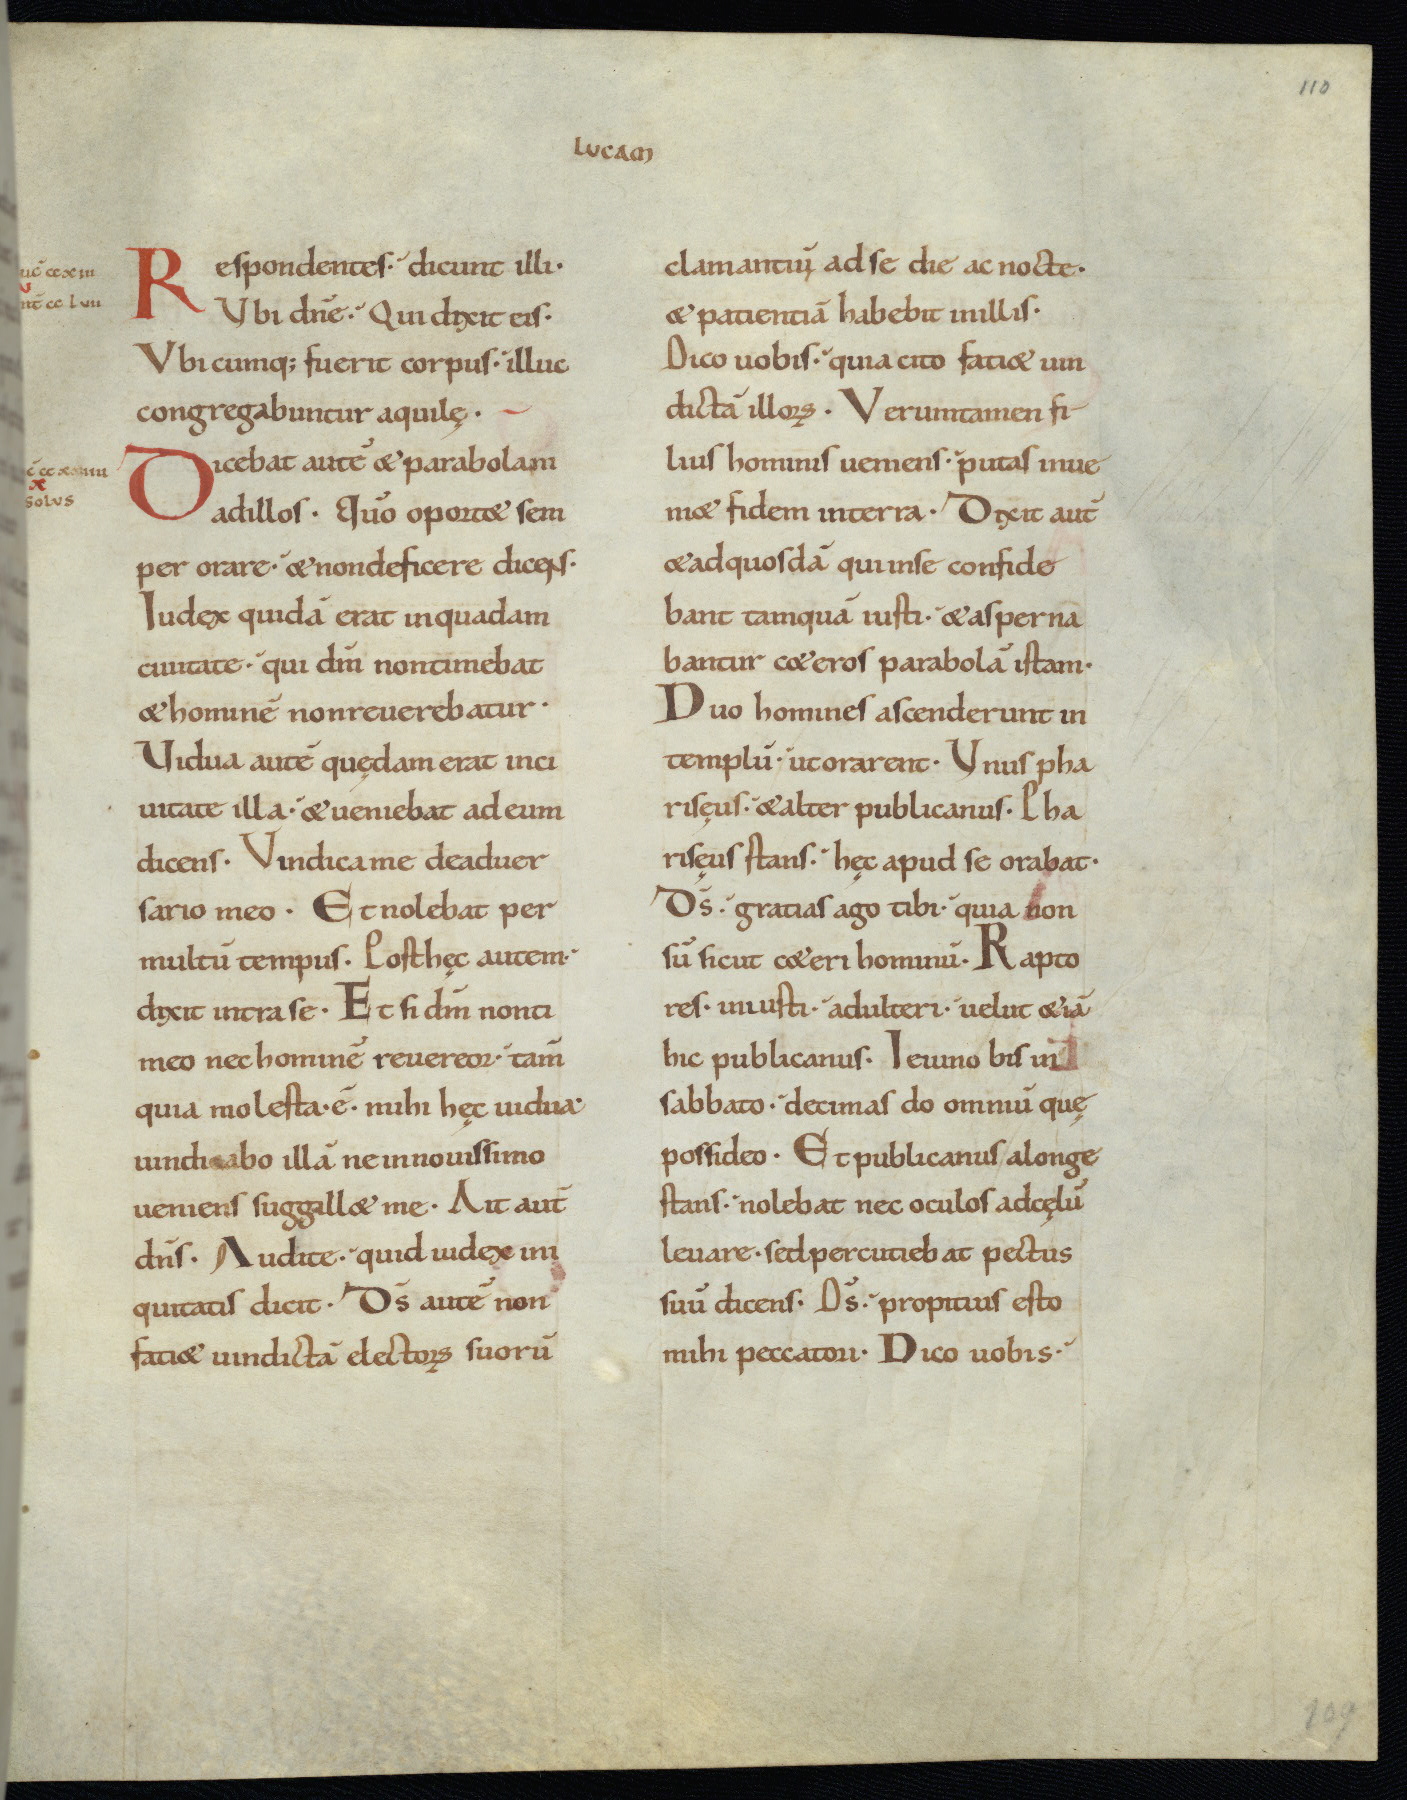 110
LUCAM
Respondentes· dicunt illi·
Vbi dñe· Qui dixit eis·
Vbicumq; fuerit corpus· illuc
congregabuntur aquilę·
Dicebat autē & parabolam
adillos· Quō oport& sem
per orare· & nondeficere dicens·
Iudex quidā erat inquadam
ciuitate· qui dm̄ nontimebat
& hominē nonreuerebatur·
Uidua autē quędam erat inci
uitate illa· & ueniebat ad eum
dicens· Vindicame deaduer
sario meo· Et nolebat per
multū tempus· Posthęc autem·
dixit intra se· Et si dm̄ nonti
meo nec hominē reuereor· tam̄
quia molesta·ē· mihi hęc uidua·
uindicabo illā ne innouissimo
ueniens suggill& me· Ait aut̄
dn̄s· Audite· quid iudex ini
quitatis dicit· Ds̄ autē non
faci& uindictā electoꝝ suorū
clamantiū ad se die ac nocte·
& patientiā habebit inillis·
Dico uobis· quia cito faci& uin
dictā illoꝝ· Verumtamen fi
lius hominis ueniens· putas inue
ni& fidem interra· Dixit aut̄
& adquosdā qui inse confide
bant tamquā iusti· & asperna
bantur c&eros parabolā istam·
Duo homines ascenderunt in
templū· ut orarent· Vnus pha
risęus· & alter publicanus· Pha
risęus stans· hęc apud se orabat·
Ds̄· gratias ago tibi· quia non
sū sicut c&eri hominū· Rapto
res· iniusti· adulteri· uelut &iā
hic publicanus· Ieiuno bis in
sabbato· decimas do omniū quę
possideo· Et publicanus alonge
stans· nolebat nec oculos adcęlū
leuare· sed percutiebat pectus
suū dicens· Ds̄· propitius esto
mihi peccatori· Dico uobis·
SOLUS
109